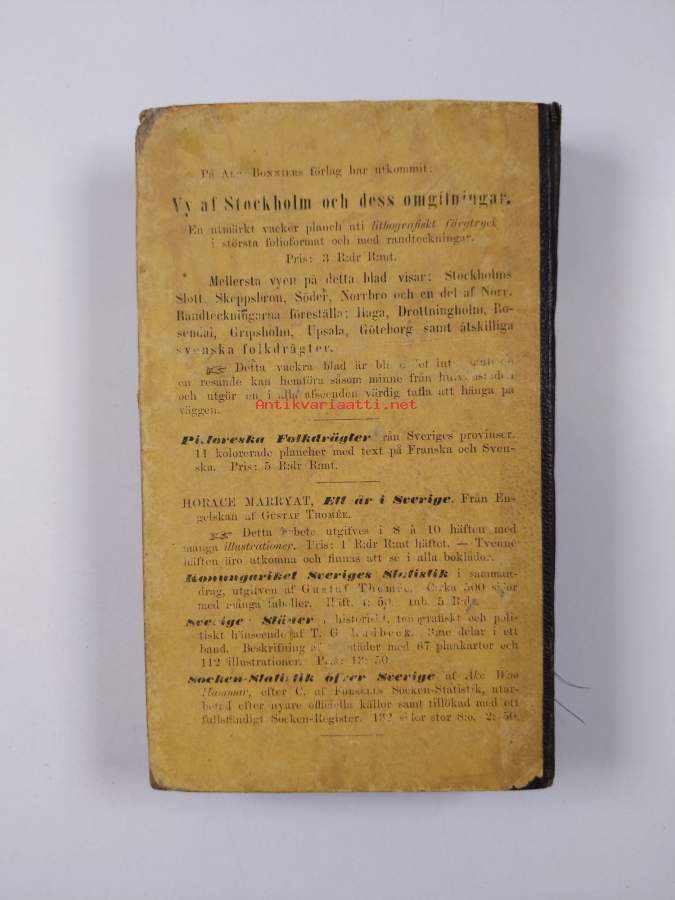 På Alb. BONNIERS förlag har utkommit:
Vy af Stockholm och dess omgifningar.
En utmärkt vacker planch uti lithografiskt färgtryck
i största folioformat och med randteckningar.
Pris: 3 R:dr R:mt.
Mellersta vyen på detta blad visar: Stockholms
Slott, Skeppsbron, Söder, Norrbro och en del af Norr.
Randteckningarna föreställa: Haga, Drottningholm, Ro-
sendal, Gripsholm, Upsala, Göteborg samt åtskilliga
svenska folkdrägter.
☞ Detta vackra blad är det
en resande kan hemföra såsom minne från hufvudstaden
och utgör en i alla afseenden värdig tafla att hänga på
väggen.
Antikvariaatti.net
Pittoreska Folkdrägter från Sveriges provinser.
11 kolorerade plancher med text på Franska och Sven-
ska. Pris: 5 R:dr R:mt.
HORACE MARRYAT, Ett år i Sverige. Från En-
gelskan af GUSTAF THOMÉE.
☞ Detta arbete utgifves i 8 à 10 häften med
många illustrationer. Pris: 1 R:dr R:mt häftet. — Tvenne
häften äro utkomna och finnas att se i alla boklådor.
Konungariket Sveriges Statistik i samman-
drag, utgifven af Gustaf Thomée. Cirka 500 sidor
med många tabeller. Häft. 4: 50. inb. 5 R:dr.
Sveriges Städer i historiskt, topografiskt och poli-
tiskt hänseende af T. G. Rudbeck. 3:ne delar i ett
band. Beskrifning städer med 67 plankartor och
112 illustrationer. Pris: 13: 50.
Socken-Statistik öfver Sverige af Åke Wme
Hammar, efter C. af FORSELLS Socken-Statistik, utar-
betad efter nyare officiella källor samt tillökad med ett
fullständigt Socken-Register. sidor stor 8:o. 2: 50.